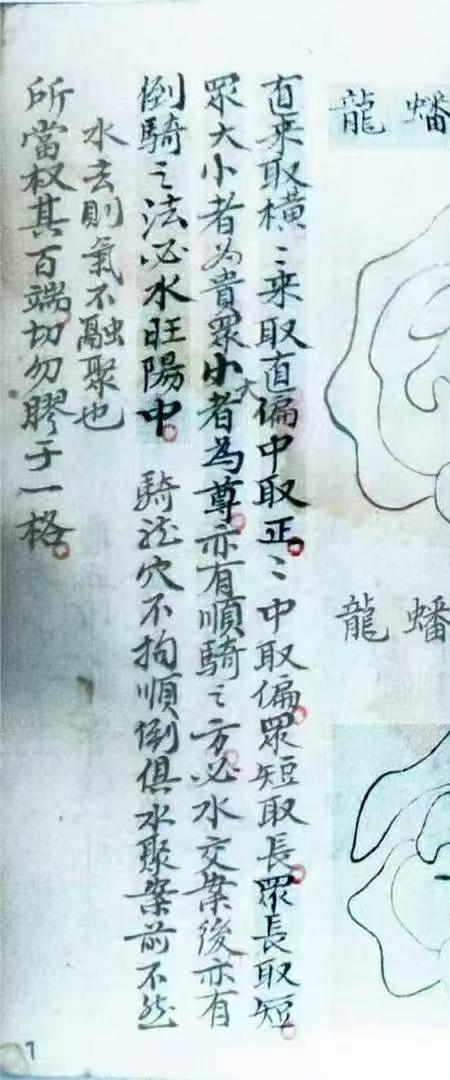 蟠龍
蟠龍
直来取橫〻来取直偏中取正〻中取偏眾短取長眾長取短
眾大小者为貴眾小大者為尊亦有順騎之方必水交案後亦有
倒騎之法必水旺陽中騎龙穴不拘順倒俱水聚案前不然
水去則氣不融聚也
所當权其百端切勿膠于一格
7